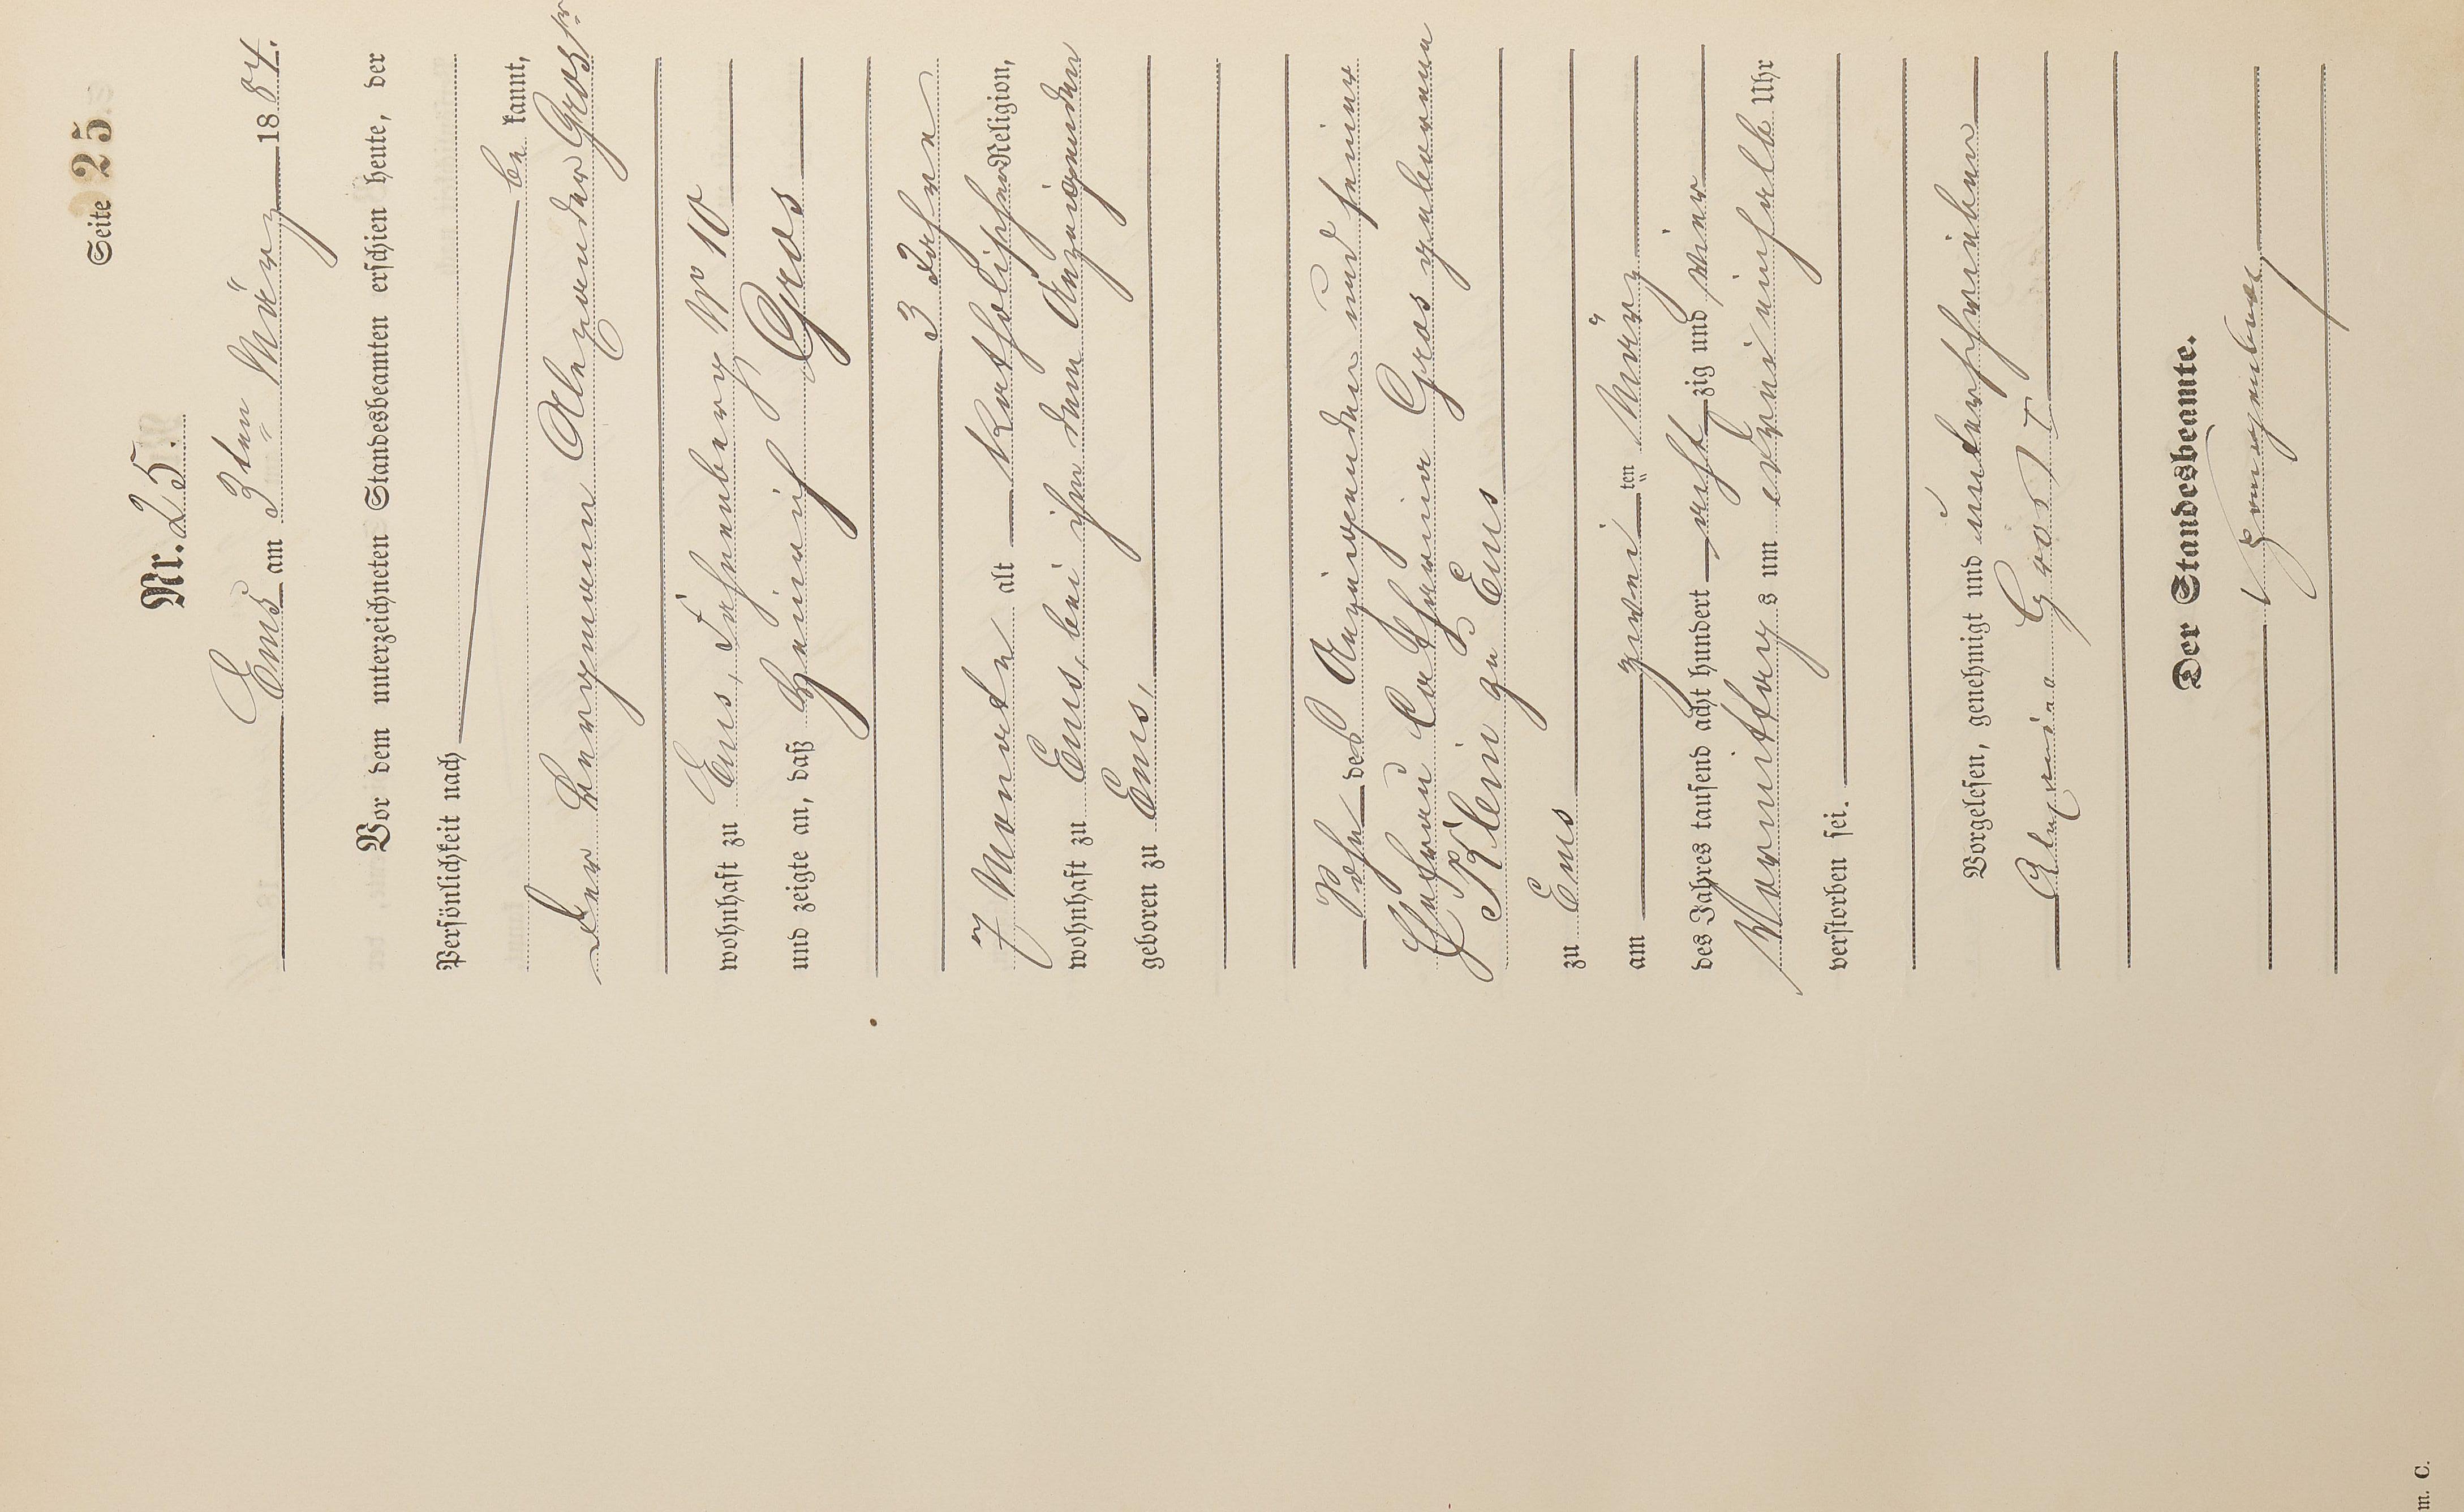 Seite 25
Nr. 25.
Ems am 3ten März 1884.
Vor dem unterzeichneten Standesbeamten erschien heute, der
Persönlichkeit nach
be kannt,
der Bergmann Alexander Gros
wohnhaft zu Ems, Fahnenberg No 10
und zeigte an, daß Heinrich Gros
3 Jahre
7 Monate alt Katholischer Religion,
wohnhaft zu Ems, bei ihm dem Anzeigenden
geboren zu Ems,
Sohn des Anzeigenden und seiner
Ehefrau Catharina Gros geborenen
Klein zu Ems
zu Ems
am zwei ten März
des Jahres tausend acht hundert acht zig und vier
Vormittag s um Uhr
verstorben sei.
Vorgelesen, genehmigt und unterschrieben
Gros
Der Standesbeamte.
m. C.